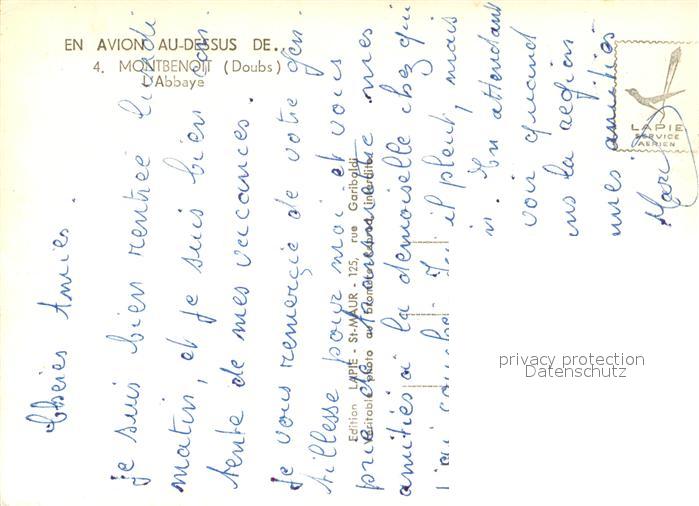 EN AVION AU-DESSUS DE...
4. MONTBENOIT (Doubs)
L'Abbaye
LAPIE
SERVICE
AERIEN
Edition LAPIE - St-MAUR - 125, rue Garibaldi
Véritable photo au bromure
interdite
Chères Amies.
je suis bien rentrée lundi
matin, et je suis bien con
tente de mes vacances.
Je vous remercie de votre gen
tillesse pour moi et vous
prie de transmettre mes
amitiés à la demoiselle chez qui
j'ai couché. Ici il pleut, mais
. En attendant
voir quand
ns la région
mes amitiés
privacy protection
Datenschutz